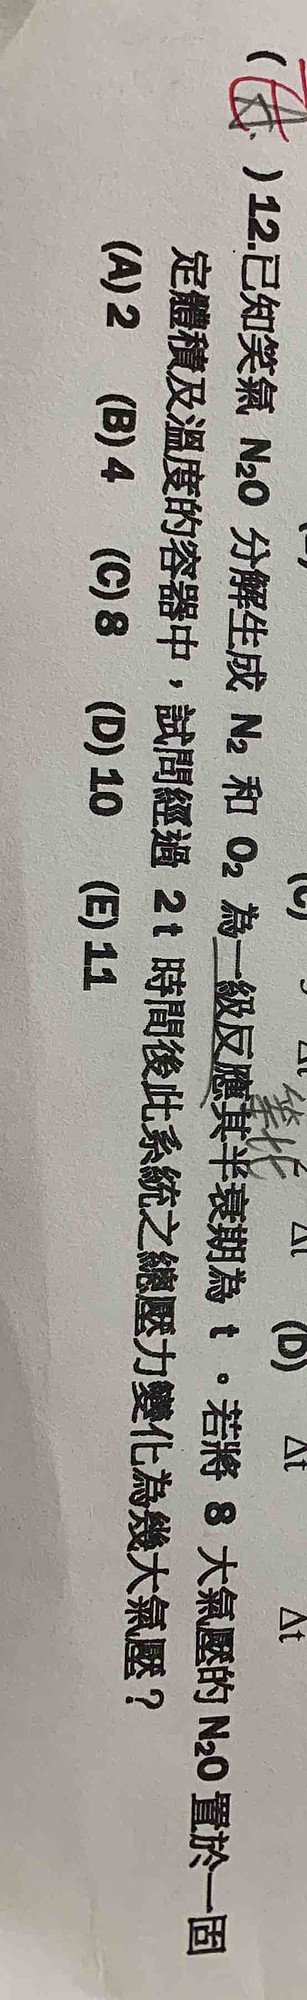 (C) Δt Δt (D) Δt Δt
等比
( )12.已知笑氣 N₂O 分解生成 N₂ 和 O₂ 為一級反應其半衰期為 t 。若將 8 大氣壓的 N₂O 置於一固
定體積及溫度的容器中，試問經過 2 t 時間後此系統之總壓力變化為幾大氣壓？
(A) 2 (B) 4 (C) 8 (D) 10 (E) 11